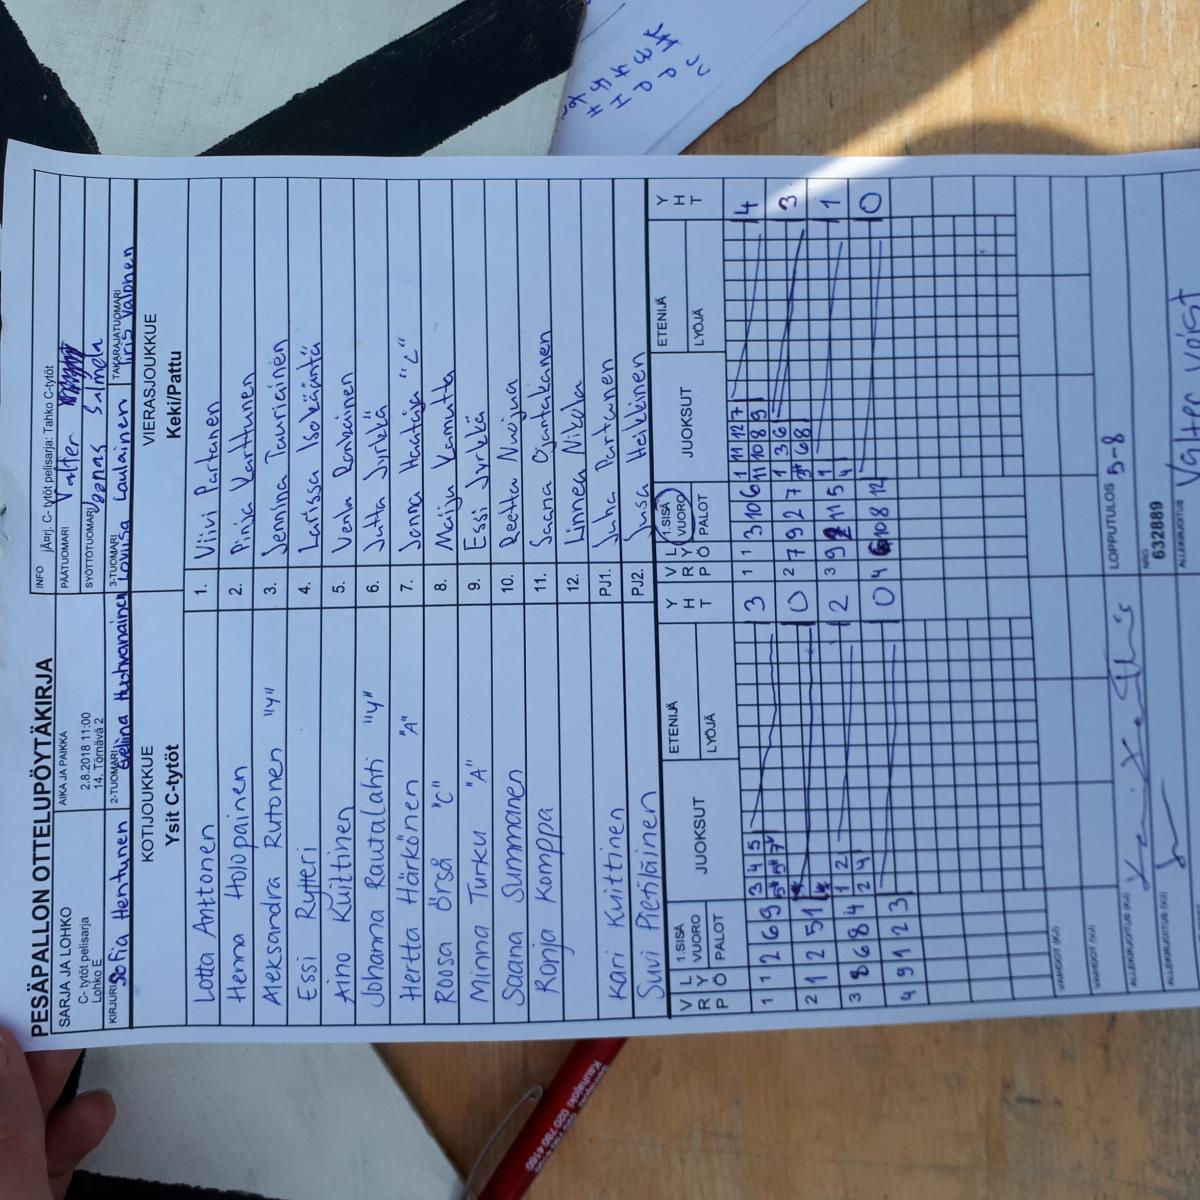 PESÄPALLON OTTELUPÖYTÄKIRJA
SARJA JA LOHKO
C- tytöt pelisarja
Lohko E
AIKA JA PAIKKA
2.8.2018 11:00
14. Törnävä 2
INFO jÄrrj. C- tytöt pelisarja: Tahko C-tytöt
PÄÄTUOMARI Valtter
SYÖTTÖTUOMARI Joonas Salmela
KIRJURI Sofia Hentunen
2-TUOMARI Eveliina
3-TUOMARI Lovisa Laulainen
TAKARAJATUOMARI Iiris Valonen
KOTIJOUKKUE
Ysit C-tytöt
VIERASJOUKKUE
Keki/Pattu
Lotta Anttonen 1. Viivi Partanen
Henna Holopainen 2. Pinja Karttunen
Aleksandra Rutonen "Y" 3. Jenniina Tauriainen
Essi Rytteri 4. Larissa Isokääntä
Aino Kuittinen 5. Venla Ronkainen
Johanna Rautalahti "Y" 6. Jutta Jyrkkä
Hertta Härkönen "A" 7. Jonna Haataja "C"
Roosa Örså "C" 8. Maiju Kamutta
Minna Turku "A" 9. Essi Jyrkkä
Saana Summanen 10. Reetta Nuojua
Ronja Komppa 11. Saana Ojantakanen
12. Linnea Nikula
Kari Kuittinen PJ1. Juha Partanen
Suvi Pietiläinen PJ2. Jusa Heikkinen
V R P L Y Ö 1.SISÄ VUORO PALOT JUOKSUT ETENIJÄ LYÖJÄ Y H T
V R P L Y Ö 1.SISÄ VUORO PALOT JUOKSUT ETENIJÄ LYÖJÄ Y H T
1 1 2 6 9 3 4 5 3
5 5 7
1 1 3 10 6 1 11 12 7 4
11 10 8 9
2 1 2 5 1 0
2 7 9 2 7 1 3 6 3
6 8
3 8 6 8 4 1 2 2
2 4
3 9 2 11 5 1 1
4
4 9 1 2 3 0
4 10 8 12 0
VAIHDOT (KJ)
VAIHDOT (VJ)
ALLEKIRJOITUS (KJ)
ALLEKIRJOITUS (VJ)
LOPPUTULOS 5-8
NRO
632889
ALLEKIRJOITUS
Valtter
Kauhajoki 020 780 4160